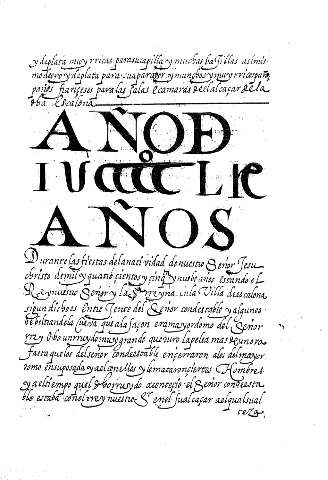 y deplata muy rricas parasucapilla y muchas baxillas asimis
modeoro y deplata para suaparador y muchos y muy rricos paños
paños françeses para las salas ecamaras de elalcaçar de la
d̶h̶a̶ Escalona
AÑO DE
I U CCCC LIX
AÑOS
Durante las fiestas delanatividad de nuestro Señor Jesu
christo de mil y quatroçientos y cinq.ta y nuebe años estando el
Rey nuestro Señor y la Reyna en la Villa de escalona
sigun dicho es Entre Jente del Señor condestable y algunos
de beltran de la cueva que ala façon era mayordomo del Señor
rrey Obo un rruydo muy grande que duro la pelea mas de una ora
fasta que los del señor condestable ençerraron ales del mayor
domo ensuposada y aél aquellas y le mataron ciertos Hombres
y a el tiempo quel dho rruydo acontesçio el Señor condesta
ble estaba con el rrey nuestro S.r en el su alcaçar ael qual su al
teza